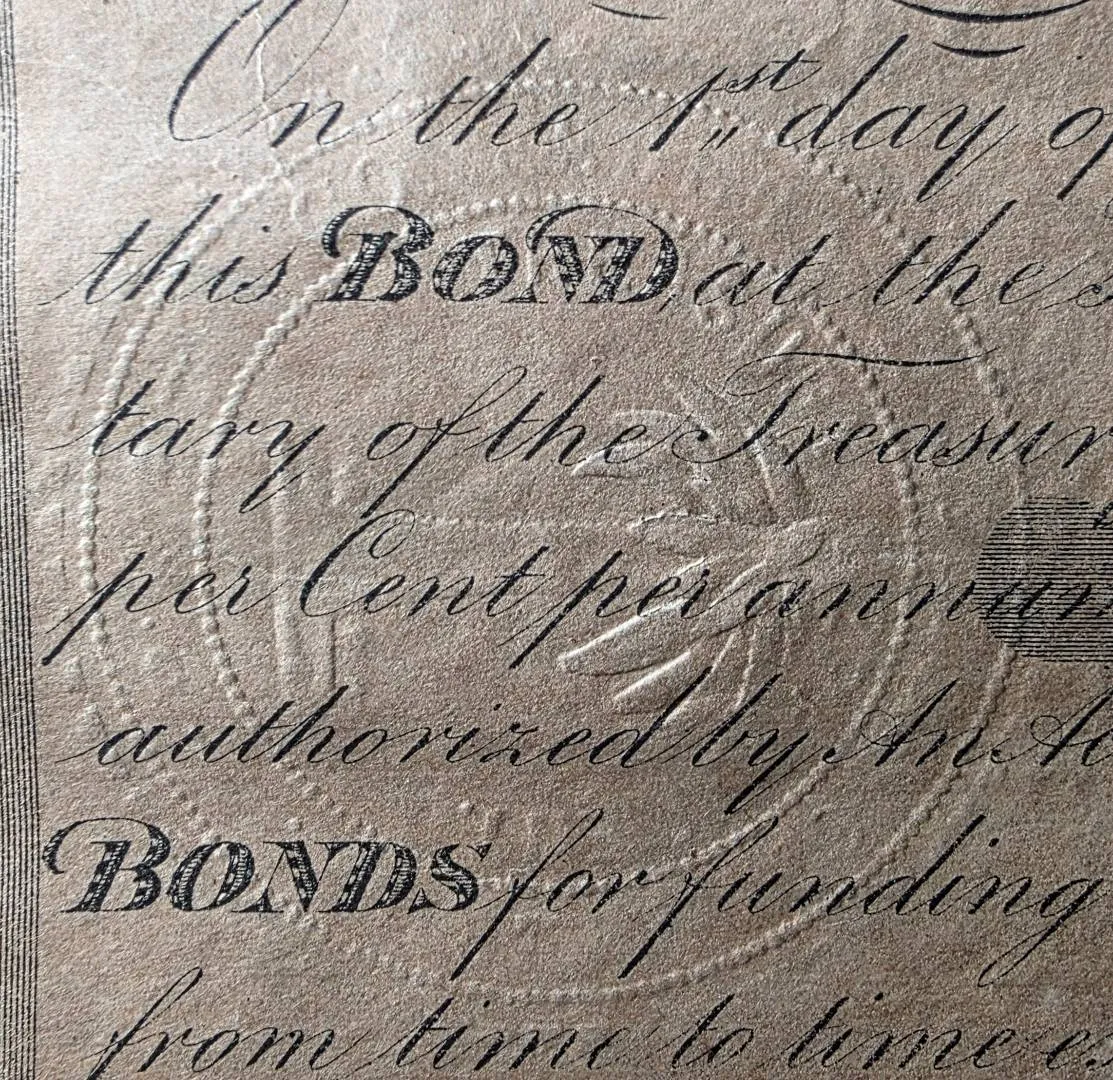 On the 1st day of
this BOND, at the
tary of the Treasur
per Cent per annum
authorized by An Ac
BONDS for funding
from time to time e